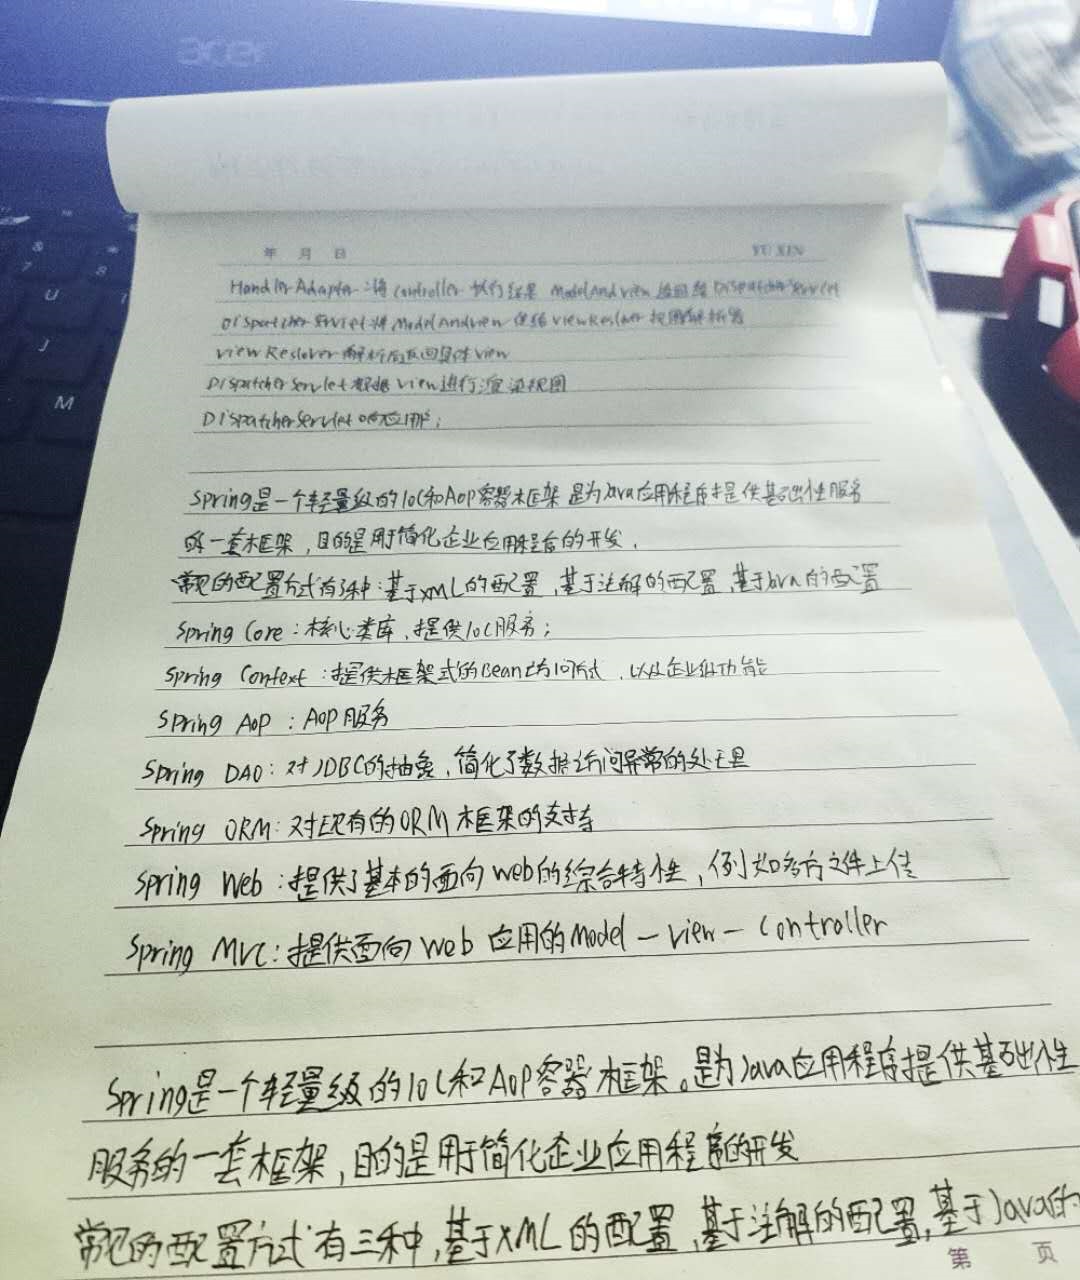 acer
年 月 日 YU XIN
HandlerAdapter:将Controller执行结果 ModelAndView 返回给 DispatcherServlet
DispatcherServlet将ModelAndView传给ViewReslover视图解析器
ViewReslover解析后返回具体View
DispatcherServlet根据View进行渲染视图
DispatcherServlet响应用户;
Spring是一个轻量级的IOC和AOP容器框架 是为Java应用程序提供基础性服务
的一套框架,目的是用于简化企业应用程序的开发.
常见的配置方式有3种:基于XML的配置,基于注解的配置,基于Java的配置
Spring Core:核心类库,提供IOC服务;
Spring Context:提供框架式的Bean访问方式,以及企业级功能
Spring AOP:AOP服务
Spring DAO:对JDBC的抽象,简化了数据访问异常的处理
Spring ORM:对现有的ORM框架的支持
Spring Web:提供了基本的面向Web的综合特性,例如多方文件上传
Spring MVC:提供面向Web应用的Model-View-Controller
Spring是一个轻量级的IOC和AOP容器框架。是为Java应用程序提供基础性
服务的一套框架,目的是用于简化企业应用程序的开发
常见的配置方式有三种,基于XML的配置,基于注解的配置,基于Java的
第 页